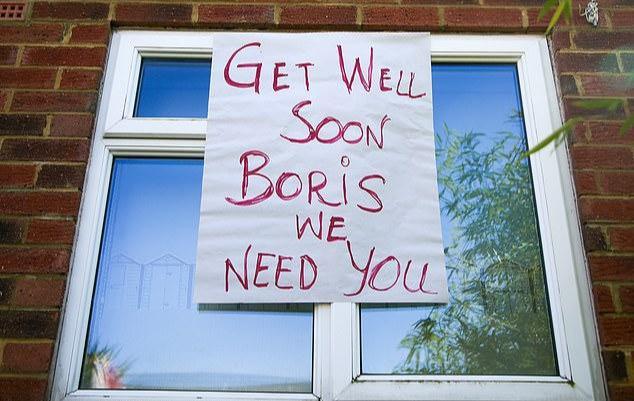 GET WELL
SOON
BORiS
WE
NEED YOU